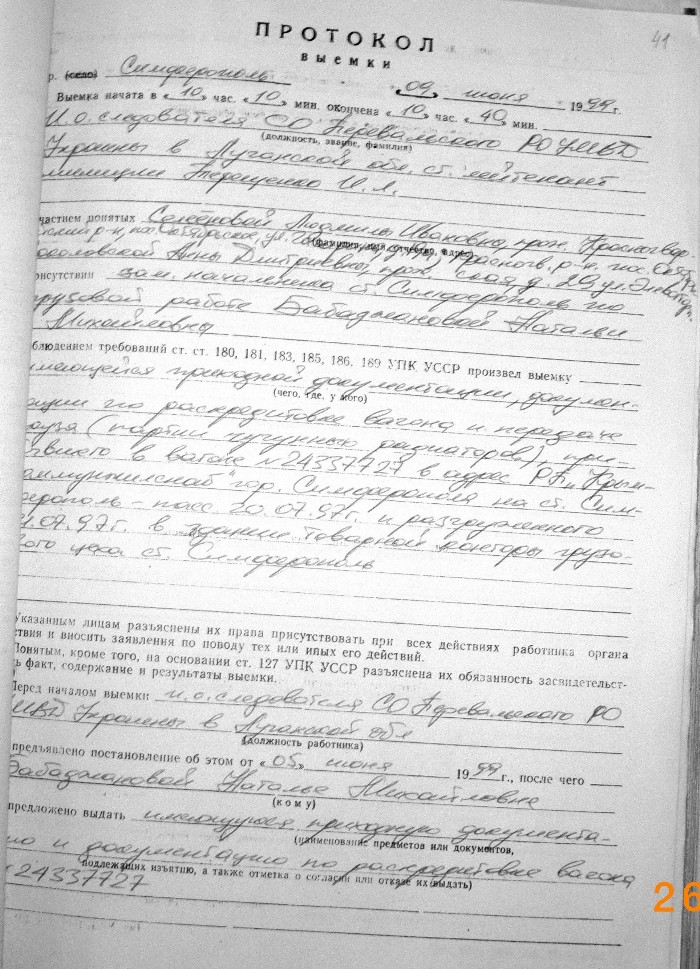 41
ПРОТОКОЛ
выемки
р. (село) Симферополь „09„ июня 1999 г.
Выемка начата в «10» час. «10» мин. окончена «10» час. «40» мин.
И.о. следователя СО Перевальского РО УМВД
(должность, звание, фамилия)
Украины в Луганской обл. ст. лейтенант
милиции Терещенко И.А.
частием понятых Семёновой Людмилы Ивановны, прож. Красногвар-
р-н, пос. Октябрьское, ул.
(фамилия, имя, отчество, адрес)
Анны Дмитриевны, прож.
рисутствии зам. начальника ст. Симферополь по
грузовой работе Бабаджановой Натальи
Михайловны
блюдением требований ст. ст. 180, 181, 183, 185, 186, 189 УПК УССР произвел выемку
имеющейся приходной документации, докумен-
(чего, где, у кого)
тации по раскредитовке вагона и передаче
груза (партии чугунных радиаторов), при-
бывшего в вагоне №24337727 в адрес
гор. Симферополя на ст. Сим-
ферополь – пасс 20.07.97г. и разгруженного
1.07.97г. в здании товарной конторы грузо-
вого цеха ст. Симферополь
Указанным лицам разъяснены их права присутствовать при всех действиях работника органа
ствия и вносить заявления по поводу тех или иных его действий.
Понятым, кроме того, на основании ст. 127 УПК УССР разъяснена их обязанность засвидетельст-
ь факт, содержание и результаты выемки.
Перед началом выемки и.о. следователя СО Перевальского РО
УМВД Украины в Луганской обл
(должность работника)
предъявлено постановление об этом от «05» июня 1999 г., после чего
Бабаджановой Наталье Михайловне
(кому)
предложено выдать имеющуюся приходную документа-
(наименование предметов или документов,
цию и документацию по раскредитовке вагона
подлежащих изъятию, а также отметка о согласии или отказе их выдать)
24337727
26